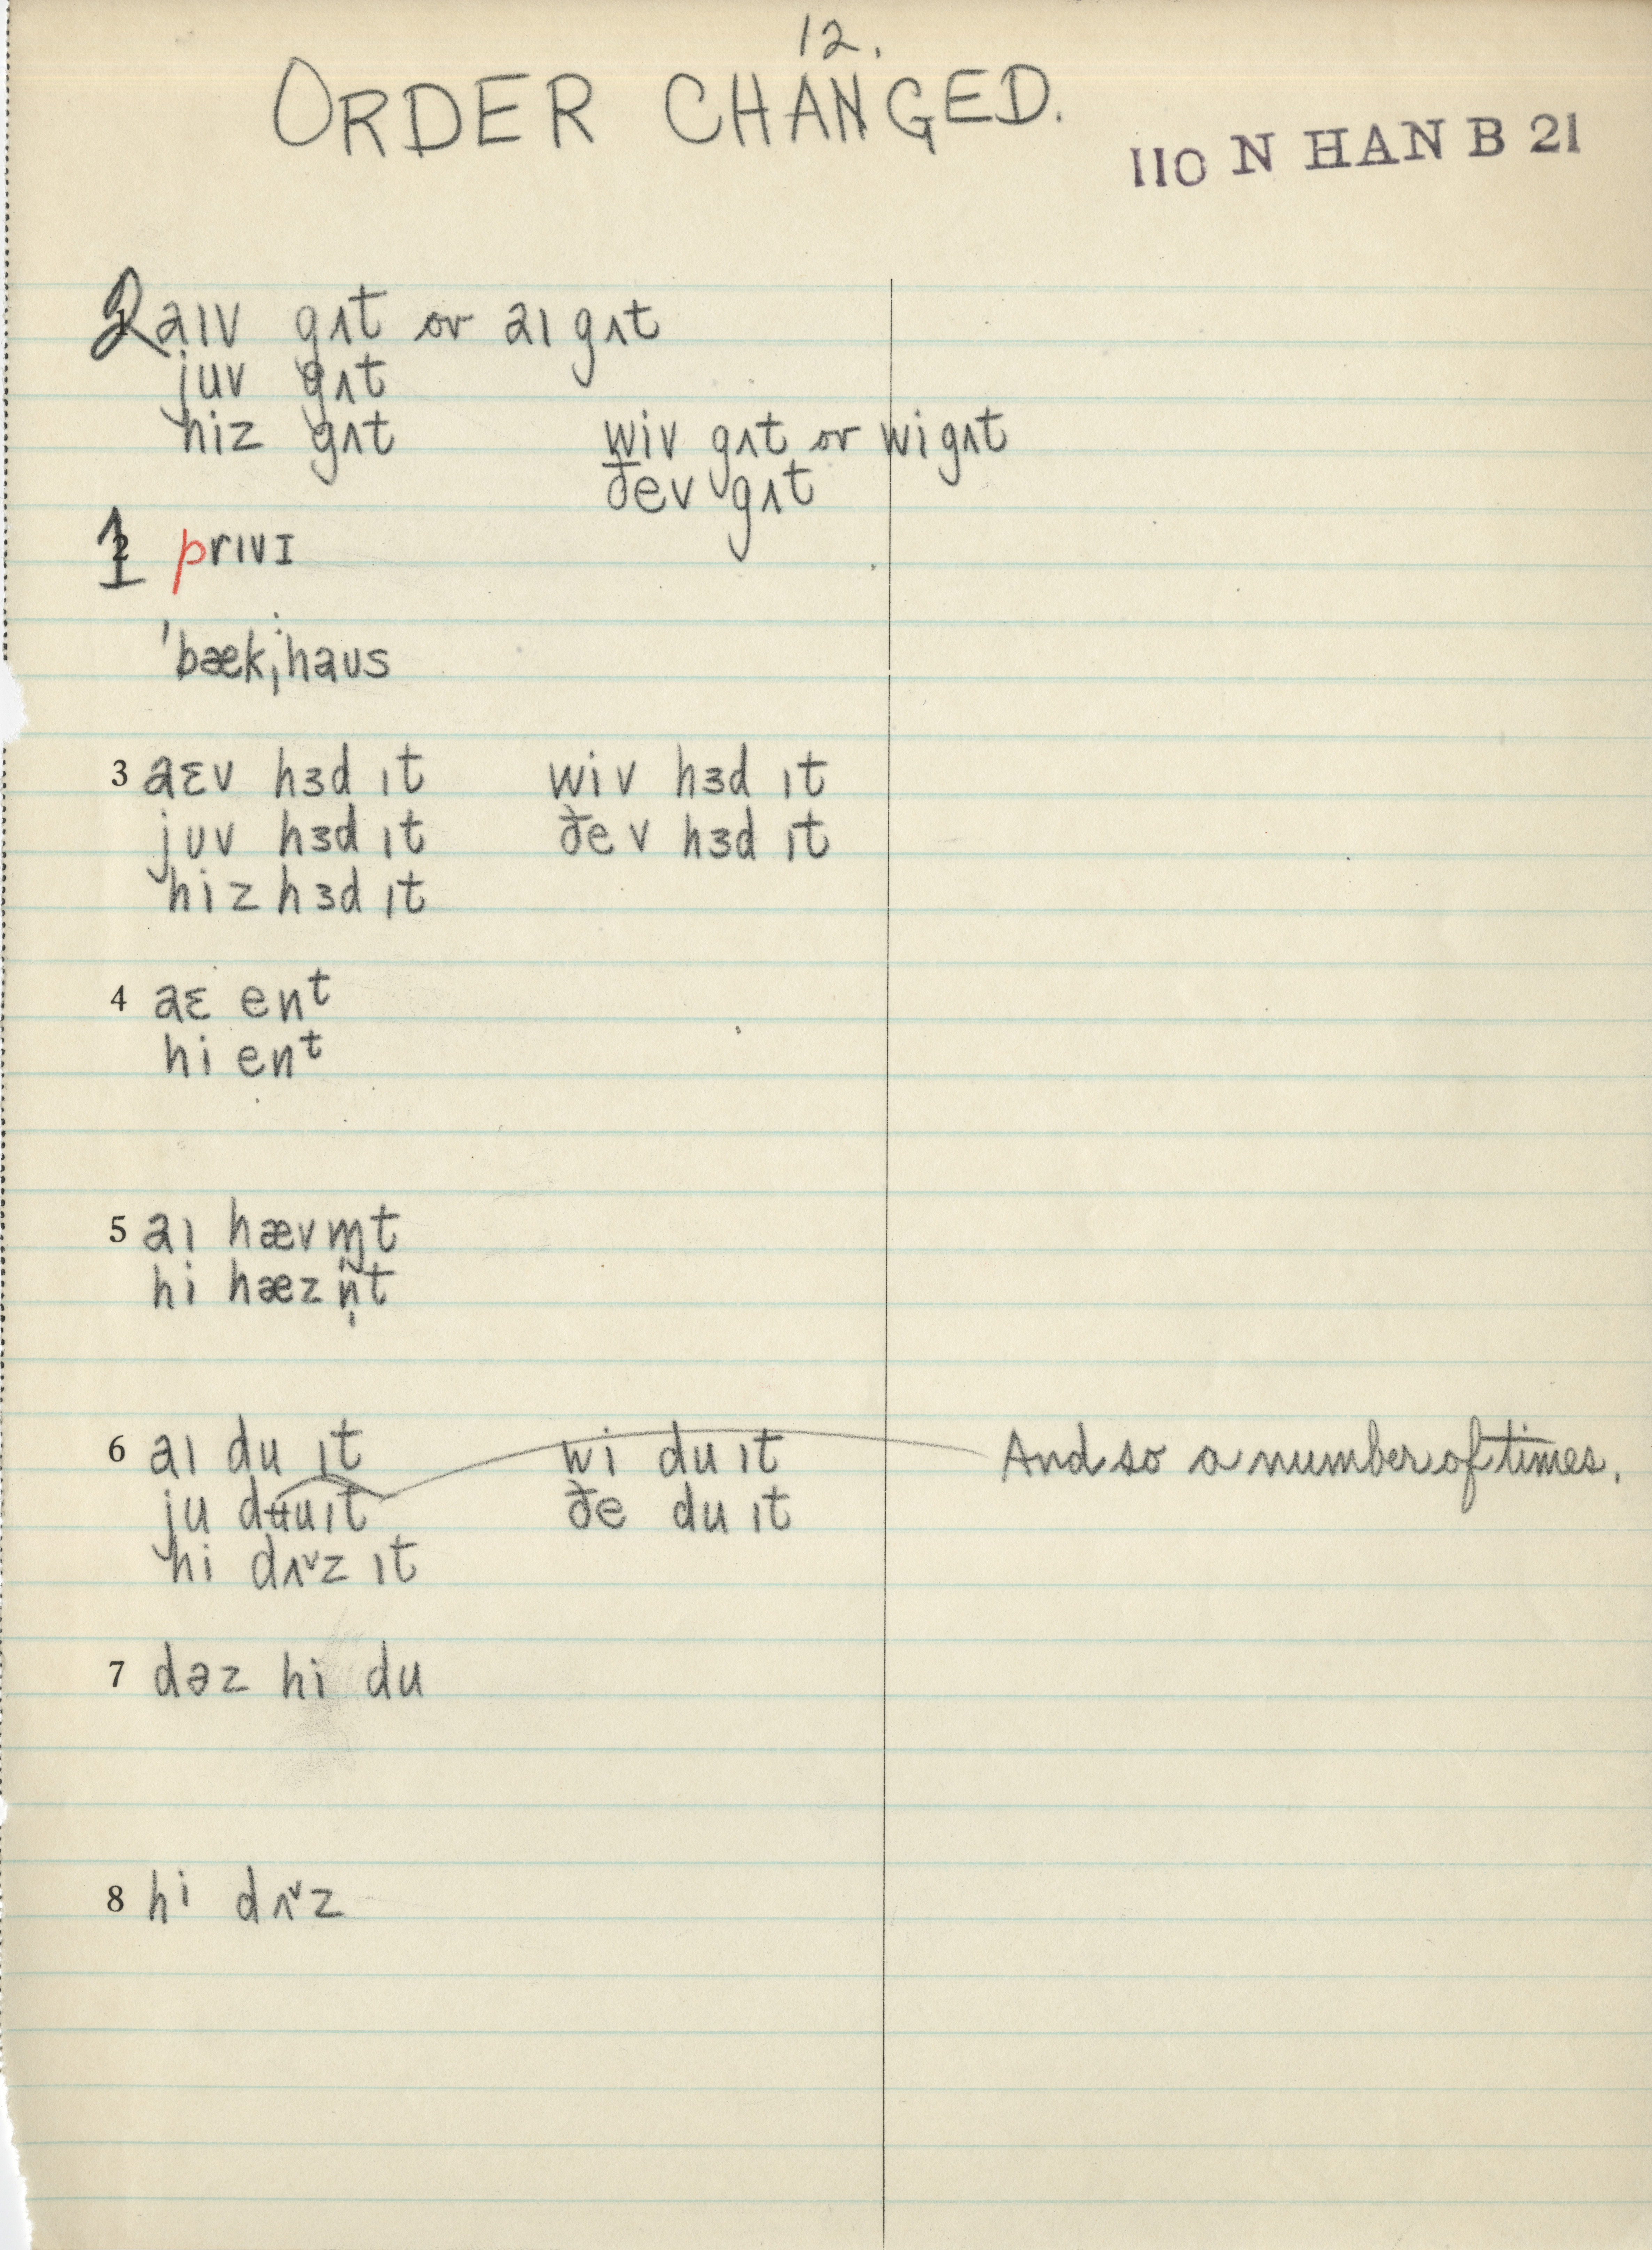 12.
ORDER CHANGED.
110 N HAN B 21
2 aɪv gʌt or aɪ gʌt
juv gʌt
hiz gʌt wiv gʌt or wi gʌt
ðev gʌt
1 prɪvɪ
ˈbækˌhaʊs
3 aɛv hɜd ɪt wiv hɜd ɪt
juv hɜd ɪt ðev hɜd ɪt
hiz hɜd ɪt
4 aɛ enᵗ
hi enᵗ
5 aɪ hævm̩t
hi hæzn̩t
6 aɪ du ɪt wi du ɪt And so a number of times.
ju duɪt ðe du ɪt
hi dʌ˅z ɪt
7 dəz hi du
8 hi dʌ˅z